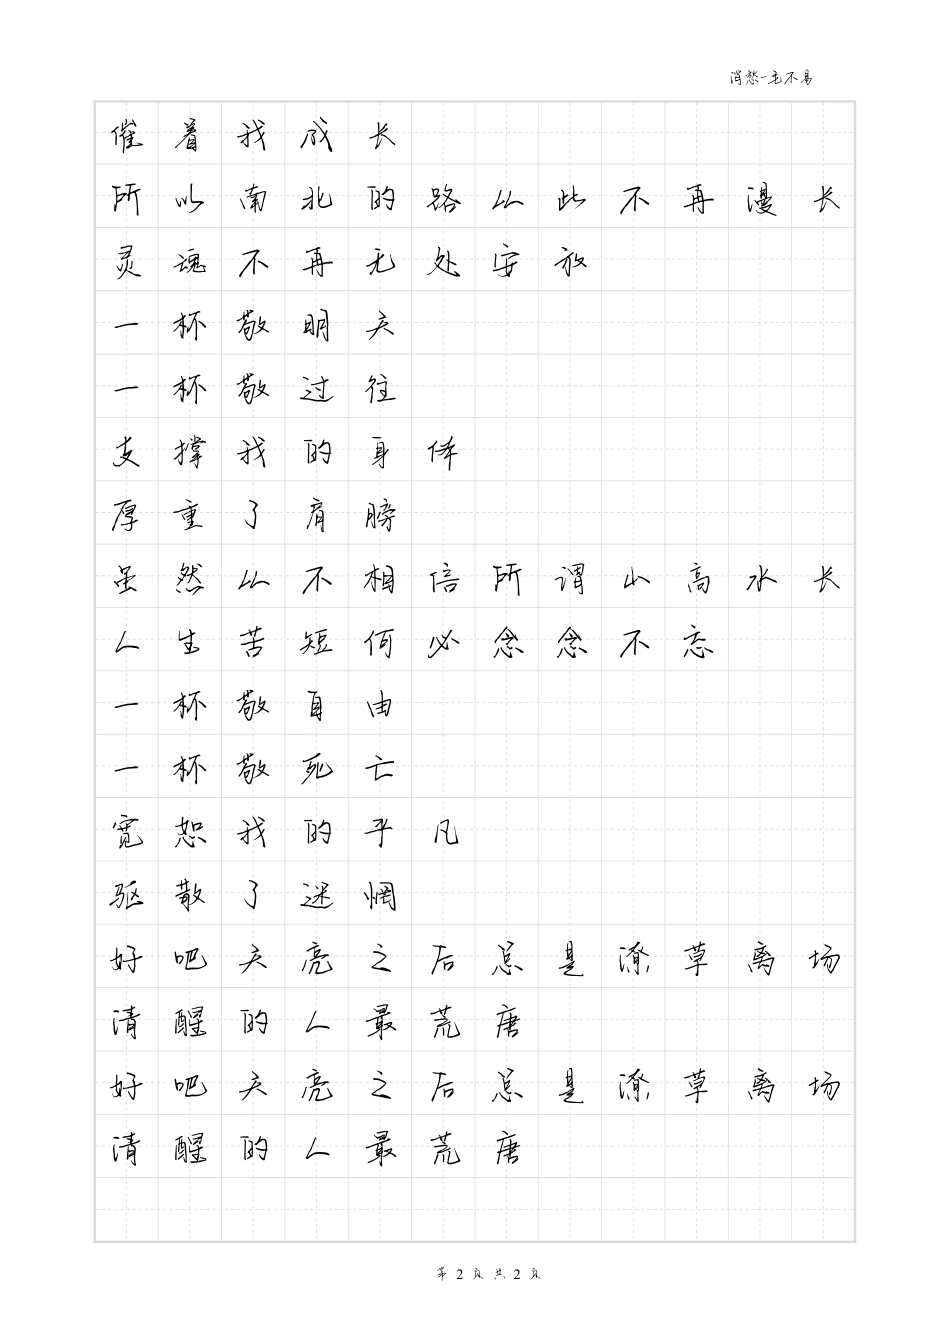 消愁-毛不易
催着我成长
所以南北的路从此不再漫长
灵魂不再无处安放
一杯敬明天
一杯敬过往
支撑我的身体
厚重了肩膀
虽然从不相信所谓山高水长
人生苦短何必念念不忘
一杯敬自由
一杯敬死亡
宽恕我的平凡
驱散了迷惘
好吧天亮之后总是潦草离场
清醒的人最荒唐
好吧天亮之后总是潦草离场
清醒的人最荒唐
第 2 页 共 2 页